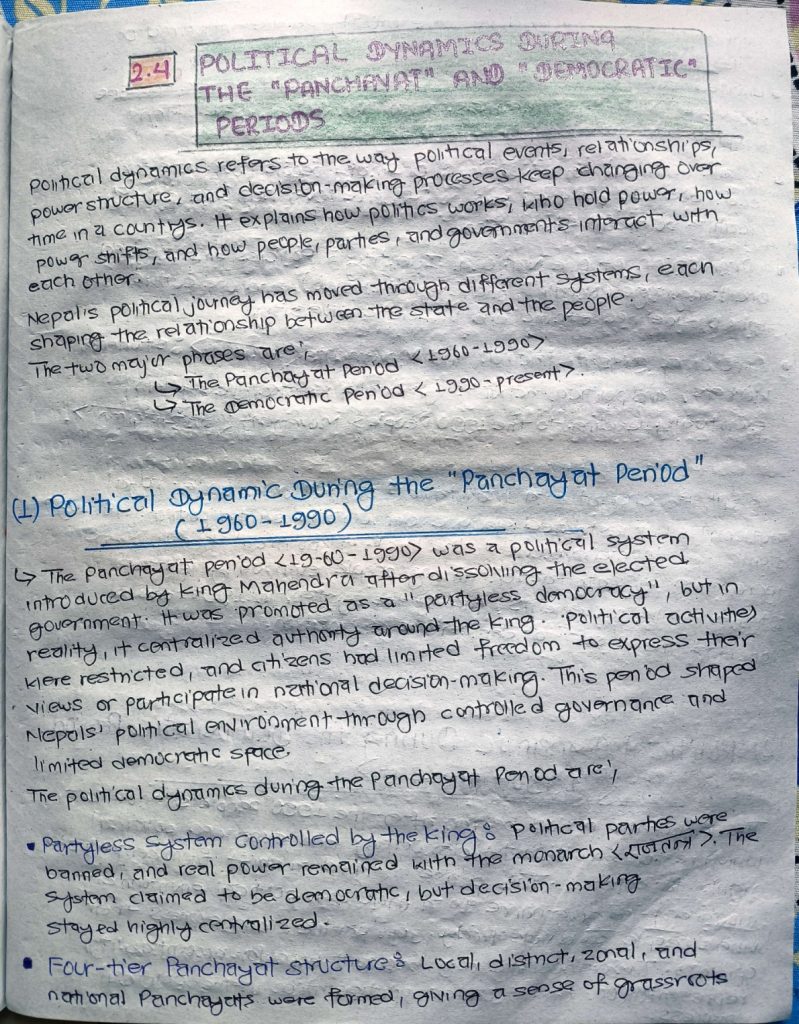 2.4
POLITICAL DYNAMICS DURING
THE "PANCHAYAT" AND "DEMOCRATIC"
PERIODS
Political dynamics refers to the way political events, relationships,
power structure, and decision-making processes keep changing over
time in a countrys. It explains how politics works, who hold power, how
power shifts, and how people, parties, and governments interact with
each other.
Nepal's political journey has moved through different systems, each
shaping the relationship between the state and the people.
The two major phases are;
↳ The Panchayat Period <1960-1990>
↳ The Democratic Period <1990-present>.
(1) Political Dynamic During the "Panchayat Period"
(1960-1990)
↳ The Panchayat period <19-60-1990> was a political system
introduced by King Mahendra after dissolving the elected
government. It was promoted as a "partyless democracy", but in
reality, it centralized authority around the king. Political activities
were restricted, and citizens had limited freedom to express their
views or participate in national decision-making. This period shaped
Nepals' political environment through controlled governance and
limited democratic space.
The political dynamics during the Panchayat Period are;
• Partyless System controlled by the king: Political parties were
banned, and real power remained with the monarch <राजतन्त्र>. The
system claimed to be democratic, but decision-making
stayed highly centralized.
• Four-tier Panchayat structure: Local, district, zonal, and
national Panchayats were formed, giving a sense of grassroots